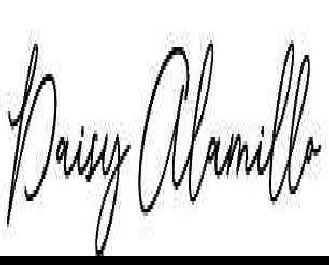 Daisy Alamillo